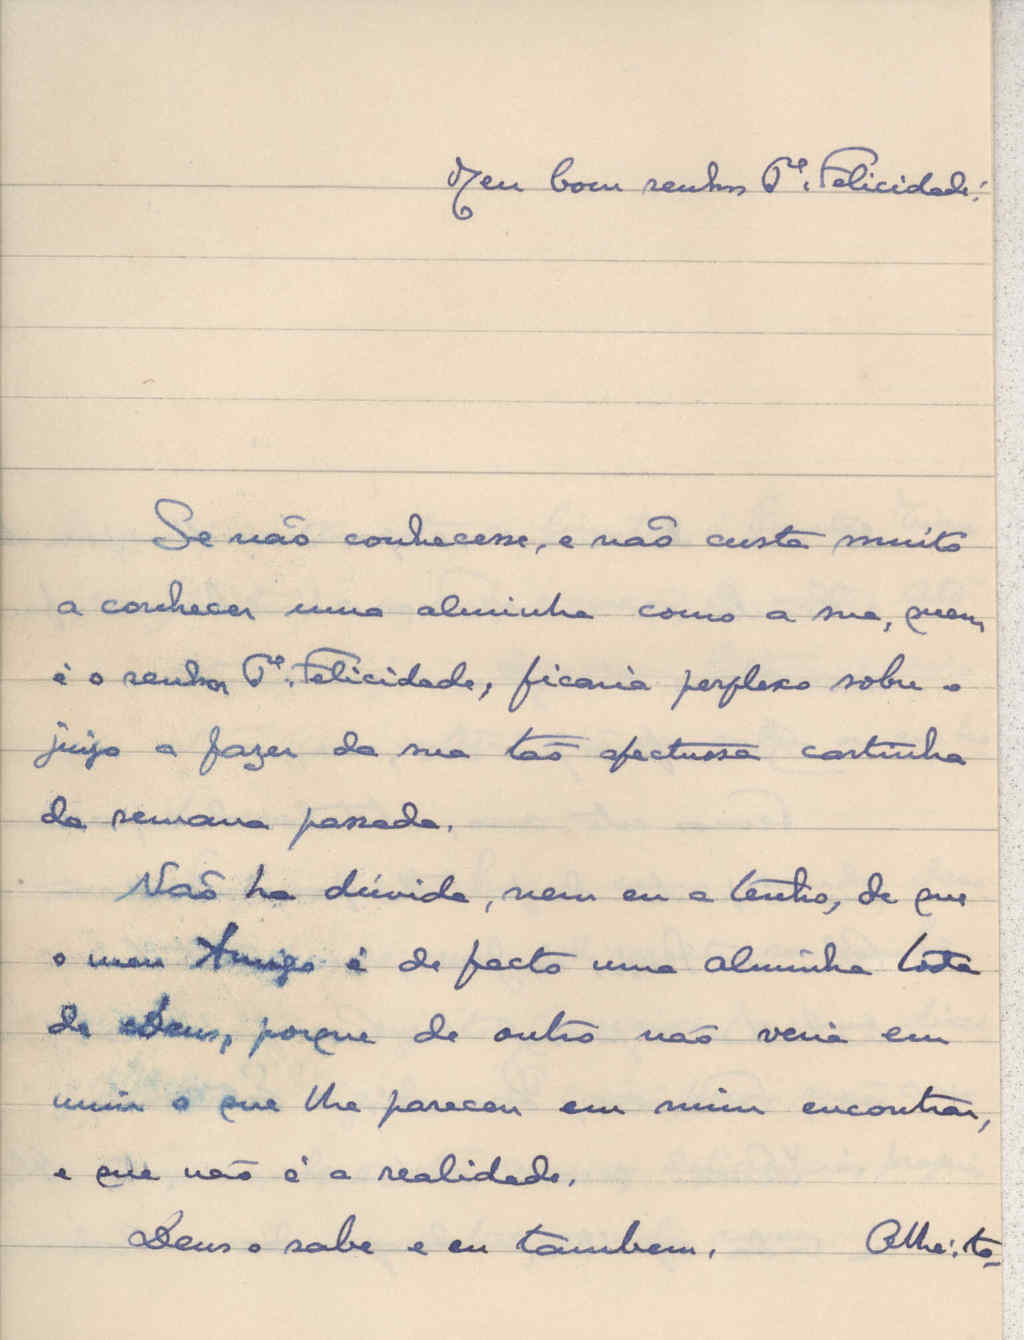 Meu bom senhor Pe. Felicidade:
Se não conhecesse, e não custa muito
a conhecer uma alminha como a sua, quem
é o senhor Pe. Felicidade, ficaria perplexo sobre o
juizo a fazer da sua tão afectuosa cartinha
da semana passada.
Não ha dúvida, nem eu a tenho, de que
o meu Amigo é de facto uma alminha toda
de Deus, porque de outro não veria em
mim o que lhe pareceu em mim encontrar,
e que não é a realidade.
Deus o sabe e eu tambem.